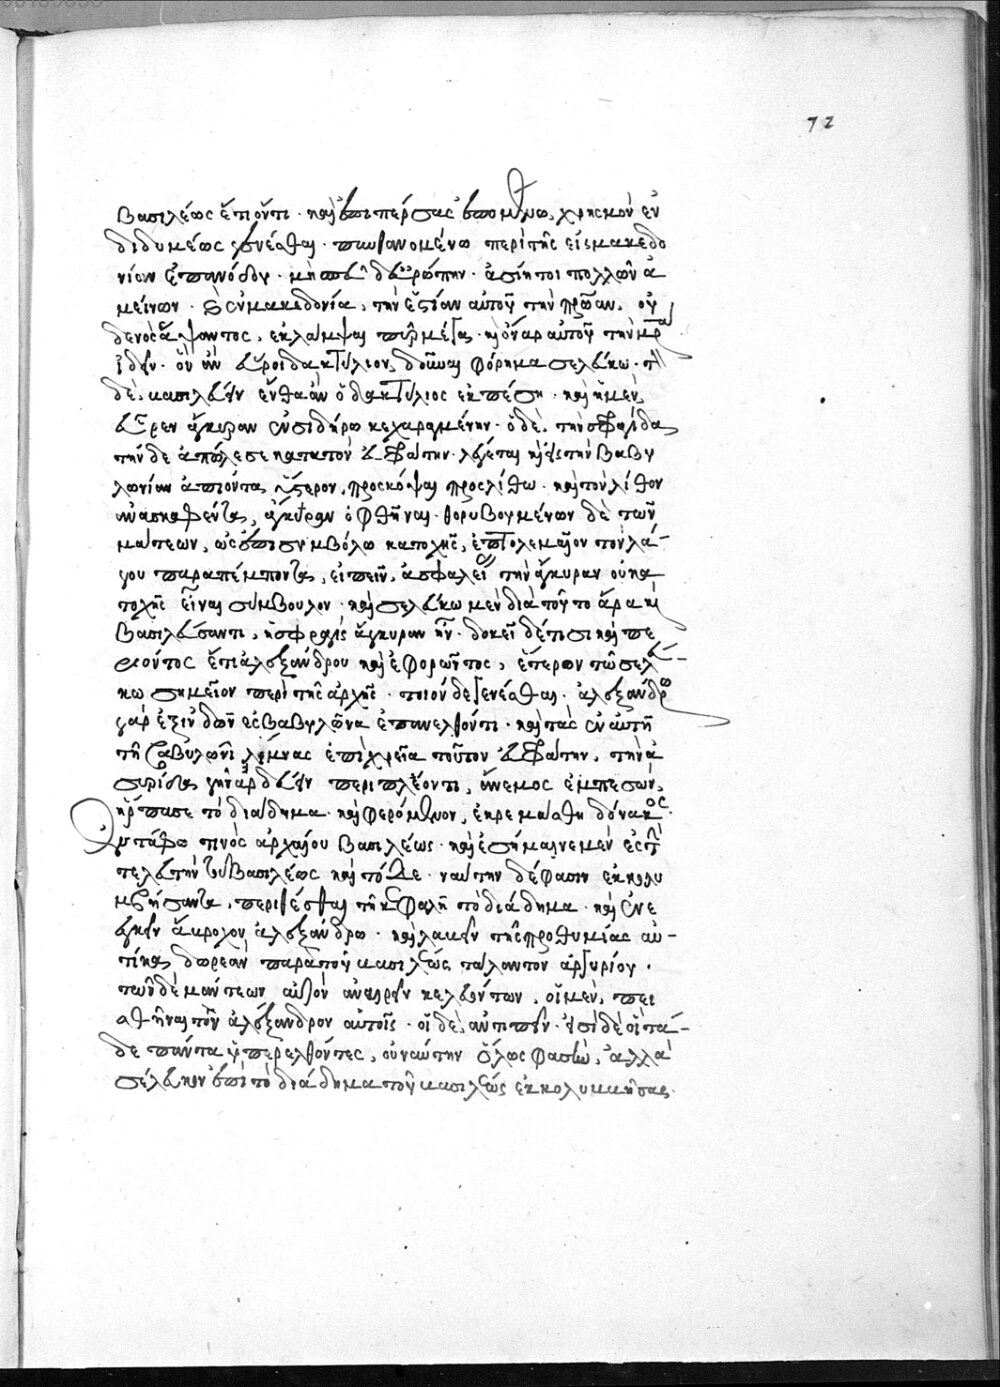 βασιλέως ἔτι ὄντι · καὶ ἐπὶ πέρσας ἑπομένω, χρησμὸν ἐν
διδυμέως γενέσθαι · πυνθανομένω περὶ τῆς εἰς μακεδο
νίαν ἐπανόδου · μὴ σπεῦδ' εὐρώπην · ἀσίη τοι πολλὸν ἀ
μείνων · καὶ ἐν μακεδονία, τὴν ἑστίαν αὐτοῦ τὴν πρώαν, οὐ
δενὸς ἅψαντος, ἐκλάμψαι πῦρ μέγα · κὶ ὄναρ αὐτοῦ τὴν μρα
ἰδεῖν · ὃν ἂν εὕροι δακτύλιον, δοῦναι φόρημα σελεύκω · τὸν
δὲ βασιλεύειν ἔνθα ἂν ὁ δακτύλιος ἐκπέση · καὶ ἡ μὲν,
εὗρεν ἄγκυραν ἐν σιδήρω κεχαραγμένην · ὁ δὲ, τὴν σφραγίδα
τήνδε ἀπώλεσε κατὰ τὸν εὐφράτην · λέγεται κὶ ἐς τὴν βαβυ
λωνίαν ἀπιόντα ὕστερον, προσκόψαι πρὸς λίθω · καὶ τὸν λίθον
ἀνασκαφέντα, ἄγκυραν ὀφθῆναι · θορυβουμένων δὲ τῶν
μάντεων, ὡς ἐπὶ συμβόλω κατοχῆς, πτολεμαῖον τὸν λά-
γου παραπέμποντα, εἰπεῖν, ἀσφαλείας τὴν ἄγκυραν οὐ κα
τοχῆς εἶναι σύμβουλον · καὶ σελεύκω μὲν διὰ τοῦτο ἄρα κὶ
βασιλεύσαντι, ἡ σφραγὶς ἄγκυραν ἦν · δοκεῖ δέ τισι καὶ πε
ριόντος ἔτι ἀλεξάνδρου καὶ ἐφορῶντος, ἕτερον τῶ σελεύ-
κω σημεῖον περὶ τῆς ἀρχῆς · τοιόνδε γενέσθαι · ἀλεξάνδρω
γὰρ ἐξ ἰνδῶν ἐς βαβυλῶνα ἐπανελθόντι · καὶ τὰς ἐν αὐτῆ
τῆ βαβυλωνία λίμνας ἐπὶ χρεία τοῦ τὸν εὐφράτην, τὴν ἀ
συρίδα γῆν ἀρδεύειν περιπλέοντι, ἄνεμος ἐμπεσὼν,
ἥρπασε τὸ διάδημα · καὶ φερόμενον, ἐκρεμάσθη δόνακος
ἐν τάφω τινὸς ἀρχαίου βασιλέως · καὶ ἐσήμαινε μὲν ἐς τὴν
τελευτὴν τοῦ βασιλέως καὶ τόδε · ναύτην δέ φασιν ἐκκολυ
μβήσαντα, περιθέσθαι τῆ κεφαλῆ τὸ διάδημα · καὶ ἐνε
γκεῖν ἄβροχον ἀλεξάνδρω · καὶ λαβεῖν τῆς προθυμίας αὐ-
τίκα δωρεὰν παρὰ τοῦ βασιλέως τάλαντον ἀργυρίου ·
τῶν δὲ μάντεων αὐτὸν ἀναιρεῖν κελευόντων, οἱ μὲν, πει
σθῆναι τὸν ἀλέξανδρον αὐτοῖς · οἱ δὲ, ἀντιπεῖν · εἰσὶ δὲ οἳ τά-
δε πάντα ὑπερελθόντες, οὐ ναύτην ὅλως φασὶν, ἀλλὰ
σέλευκον ἐπὶ τὸ διάδημα τοῦ βασιλέως ἐκκολυμβῆσαι ·
72